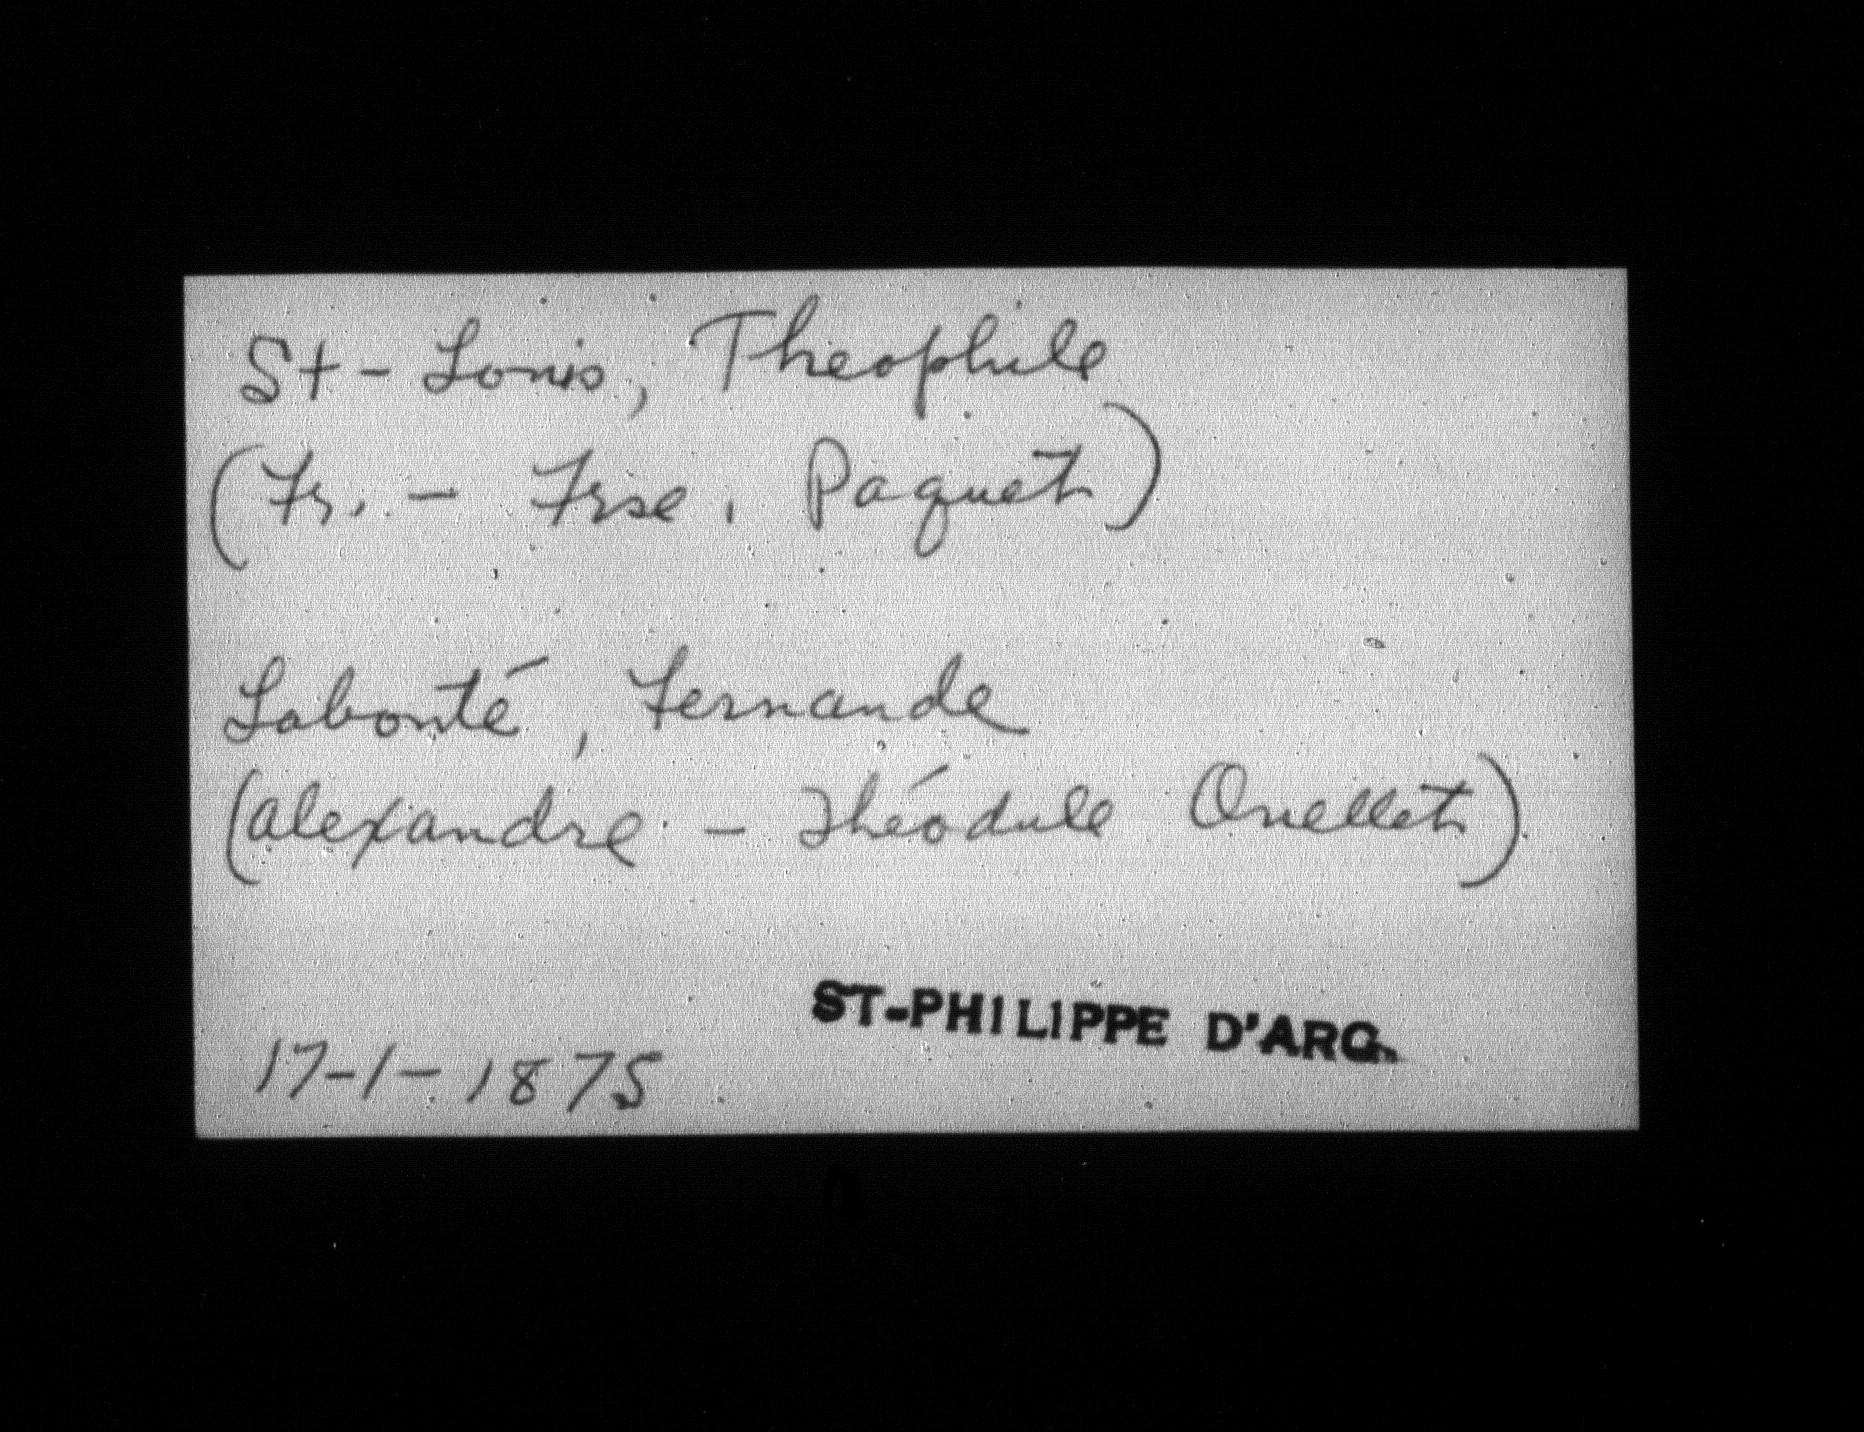 St-Louis, Theophile
(Fr. - Frse. Paquet)
Labonté, Fernande
(Alexandre - Théodule Ouellet)
ST-PHILIPPE D'ARG.
17-1-1875